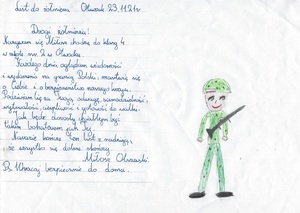 List do żołnierza Otwock 23.11.21r.
Drogi żołnierzu!
Nazywam się Miłosz chodzę do klasy 4
w szkole nr 2 w Otwocku.
Każdego dnia oglądam wiadomości
z wydarzeń na granicy Polski, martwię się
o Ciebie i o bezpieczeństwo naszego kraju.
Podziwiam Cię za Twoją odwagę, samodzielność,
wytrwałość, cierpliwość i gotowość do walki.
Jak będę dorosły chciałbym być
takim bohaterem jak Ty.
Na razie kończę ten list z nadzieją,
że wszystko się dobrze skończy.
Miłosz
Ps. Wracaj bezpiecznie do domu.